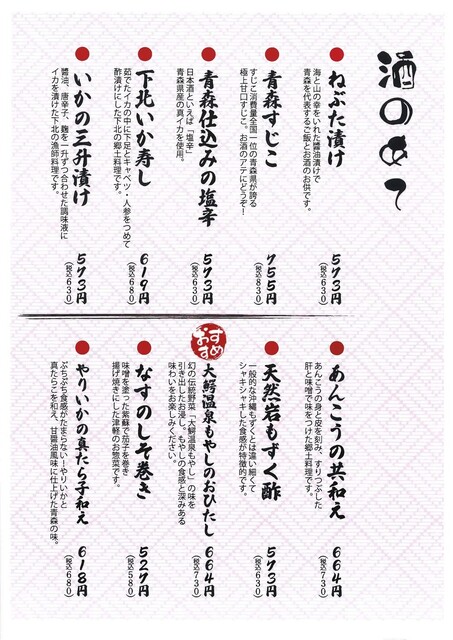 酒のあて
ねぶた漬け
海と山の幸をいれた醤油漬けで
青森を代表するご飯とお酒のお供です。
573円
(税込630)
青森すじこ
すじこ消費量全国一位の青森県が誇る
極上甘口すじこ。お酒のアテにどうぞ！
755円
(税込830)
青森仕込みの塩辛
日本酒といえば「塩辛」
青森県産の真イカを使用。
573円
(税込630)
下北いか寿し
茹でたイカの中に下足とキャベツ・人参をつめて
酢漬けにした下北の郷土料理です。
619円
(税込680)
いかの三升漬け
醤油、唐辛子、麹を一升ずつ合わせた調味液に
イカを漬けた下北の漁師料理です。
573円
(税込630)
あんこうの共和え
あんこうの身と皮を刻み、すりつぶした
肝と味噌で味をつけた郷土料理です。
664円
(税込730)
天然岩もずく酢
一般的な沖縄もずくとは違い細くて
シャキシャキした食感が特徴的です。
573円
(税込630)
おすすめ
大鰐温泉もやしのおひたし
幻の伝統野菜「大鰐温泉もやし」の味を
引き出したお浸し。もやしの食感と深みある
味わいをお楽しみください。
664円
(税込730)
なすのしそ巻き
味噌を塗った紫蘇で茄子を巻き
揚げ焼きにした津軽のお惣菜です。
527円
(税込580)
やりいかの真たら子和え
ぷちぷち食感がたまらない！やりいかと
真たらこを和え、甘醤油風味に仕上げた青森の味。
618円
(税込680)